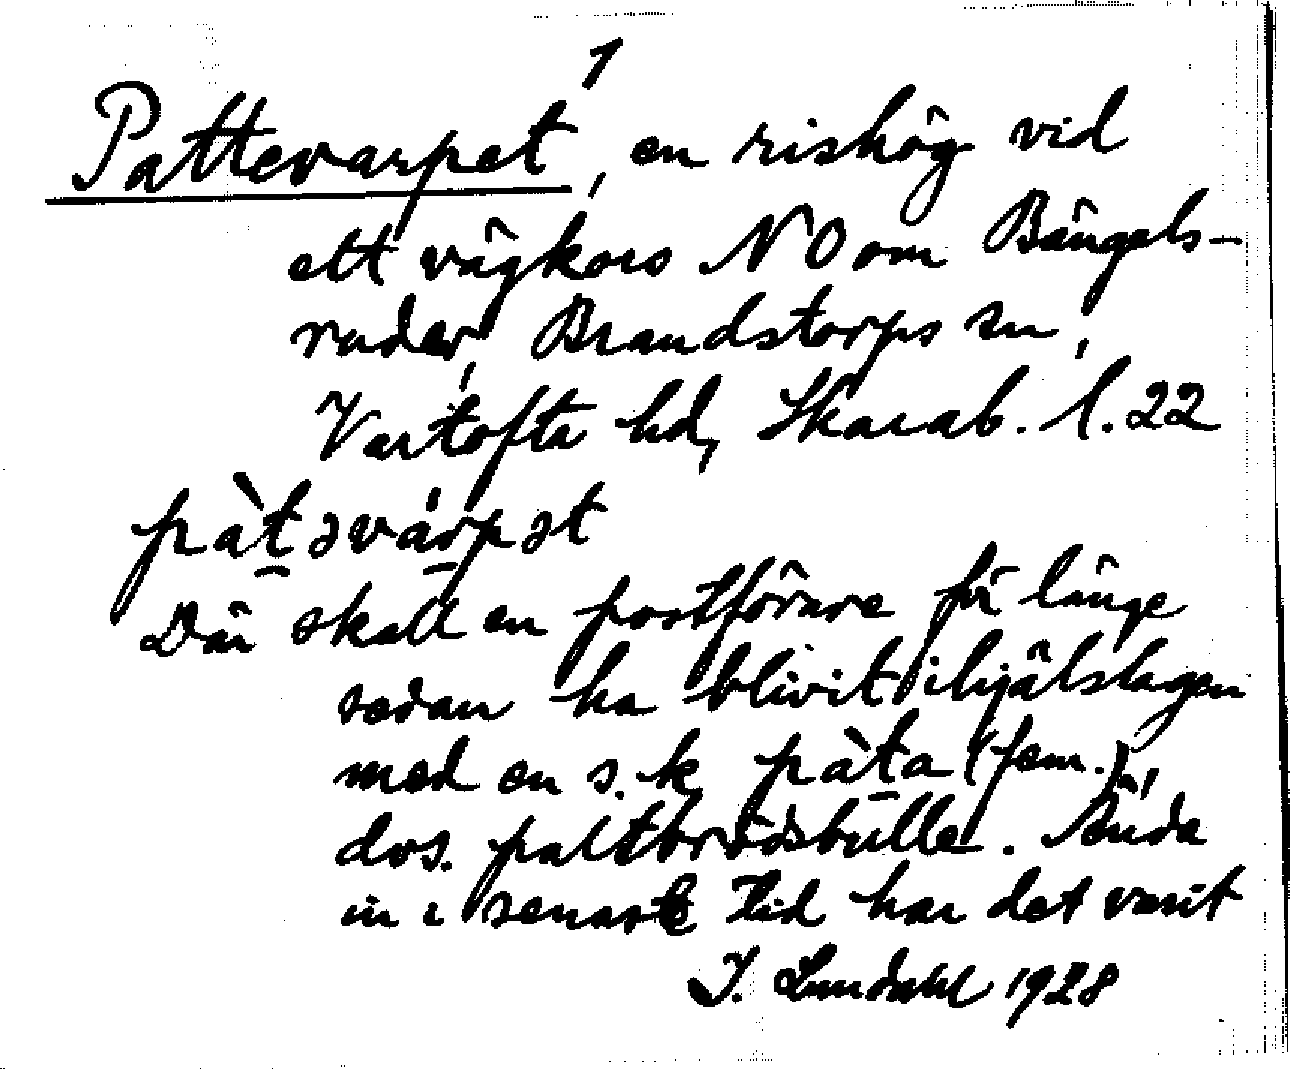 1
Pattevarpet, en rishög vid
ett vägkors NO om Bängels-
ruder, Brandstorps sn,
Vartofta hd, Skarab. l. 22
pàt̯əvár̯pət
Där skall en postförare för länge
sedan ha blivit ihjälslagen
med en s.k. pàt̯a (fem.),
dvs. paltbrödsbulle. Ända
in i senaste tid har det varit
I. Lundahl 1928